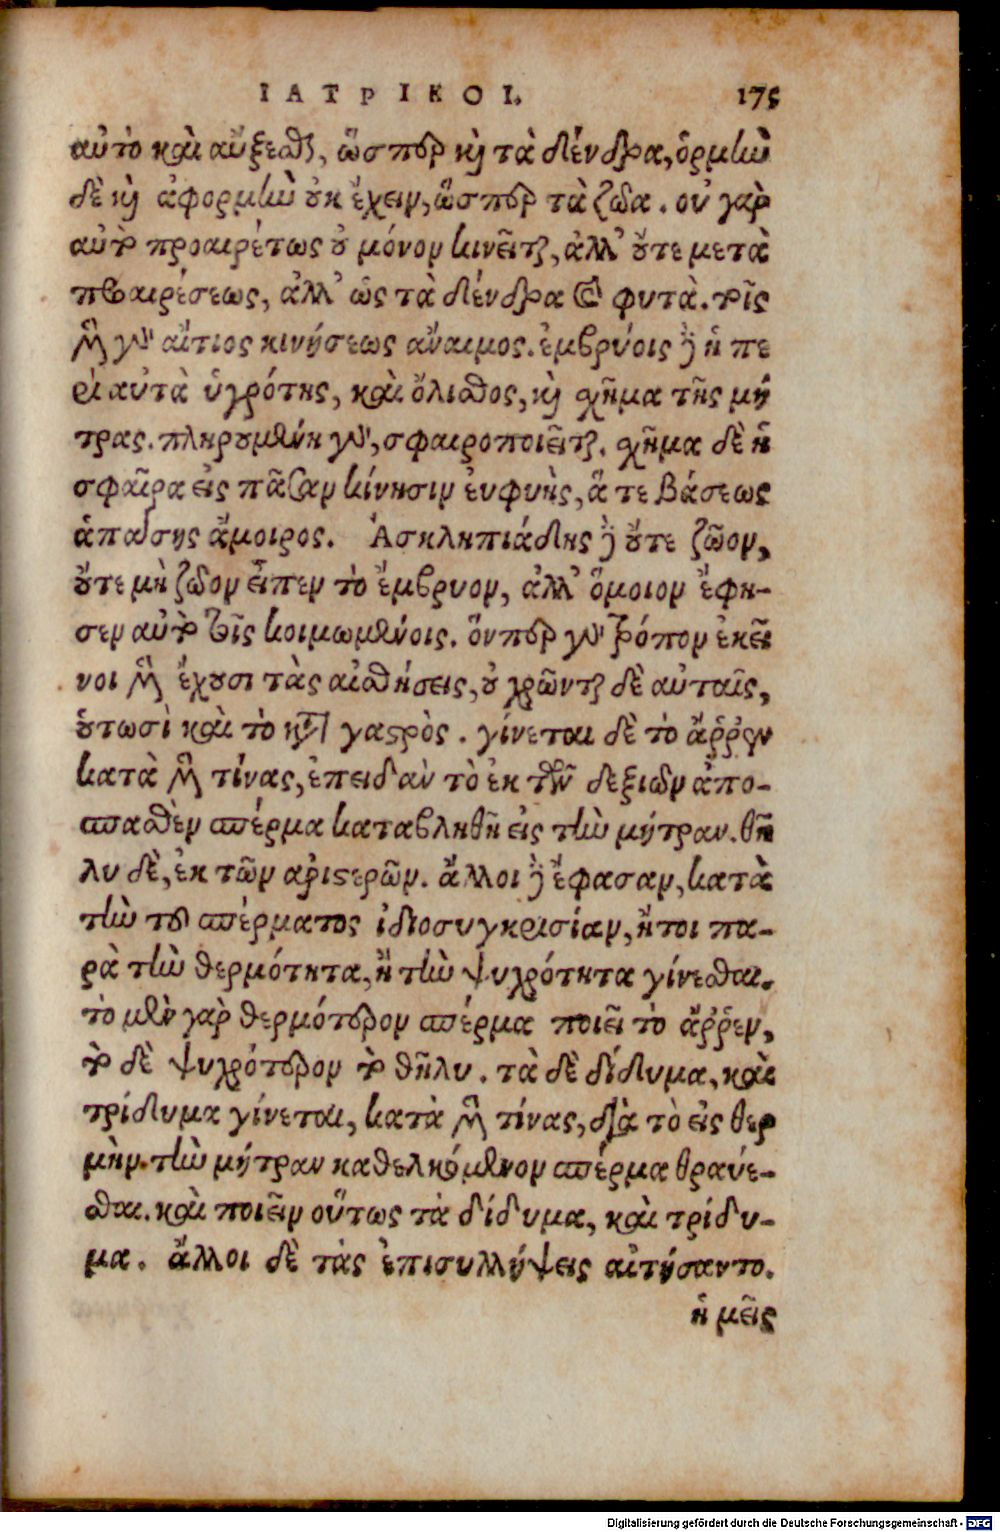 ΙΑΤΡΙΚΟΙ. 175
αὐτὸ καὶ αὔξεσθαι, ὥσπερ καὶ τὰ δένδρα, ὁρμὴν
δὲ καὶ ἀφορμὴν οὐκ ἔχειν, ὥσπερ τὰ ζῶα. οὐ γὰρ
αὐτὸ προαιρέτως οὐ μόνον κινεῖται, ἀλλ' οὔτε μετὰ
προαιρέσεως, ἀλλ' ὡς τὰ δένδρα καὶ φυτὰ. τοῖς
μὲν γοῦν αἴτιος κινήσεως ἄναιμος. ἐμβρύοις δὲ ἡ πε
ρὶ αὐτὰ ὑγρότης, καὶ ὄλισθος, καὶ σχῆμα τῆς μή
τρας. πληρουμένη γοῦν, σφαιροποιεῖται. σχῆμα δὲ ἡ
σφαῖρα εἰς πᾶσαν κίνησιν ἐυφυὴς, ἅ τε βάσεως
ἁπάσης ἄμοιρος. Ἀσκληπιάδης δὲ οὔτε ζῶον,
οὔτε μὴ ζῶον εἶπεν τὸ ἔμβρυον, ἀλλ' ὅμοιον ἔφη-
σεν αὐτὸ τοῖς κοιμωμένοις. ὅνπερ γοῦν τρόπον ἐκεῖ
νοι μὲν ἔχουσι τὰς αἰσθήσεις, οὐ χρῶνται δὲ αὐταῖς,
οὑτωσὶ καὶ τὸ κατὰ γαστρὸς. γίνεται δὲ τὸ ἄῤῥεν
κατὰ μὲν τίνας, ἐπειδὰν τὸ ἐκ τῶν δεξιῶν ἀπο-
σπασθὲν σπέρμα καταβληθῆ εἰς τὴν μήτραν. θῆ
λυ δὲ, ἐκ τῶν αριστερῶν. ἄλλοι δὲ ἔφασαν, κατὰ
τὴν τοῦ σπέρματος ἰδιοσυγκρισίαν, ἤτοι πα-
ρὰ τὴν θερμότητα, ἢ τὴν ψυχρότητα γίνεσθαι.
τὸ μὲν γὰρ θερμότερον σπέρμα ποιεῖ τὸ ἄῤῥεν,
τὸ δὲ ψυχρότερον τὸ θῆλυ. τὰ δὲ δίδυμα, καὶ
τρίδυμα γίνεται, κατὰ μὲν τίνας, διὰ τὸ εἰς θερ
μὴν τὴν μήτραν καθελκόμενον σπέρμα θραύε-
σθαι. καὶ ποιεῖν οὕτως τὰ δίδυμα, καὶ τρίδυ-
μα. ἄλλοι δὲ τὰς ἐπισυλλήψεις αἰτήσαντο.
ἡ μεῖς
Digitalisierung gefördert durch die Deutsche Forschungsgemeinschaft - DFG